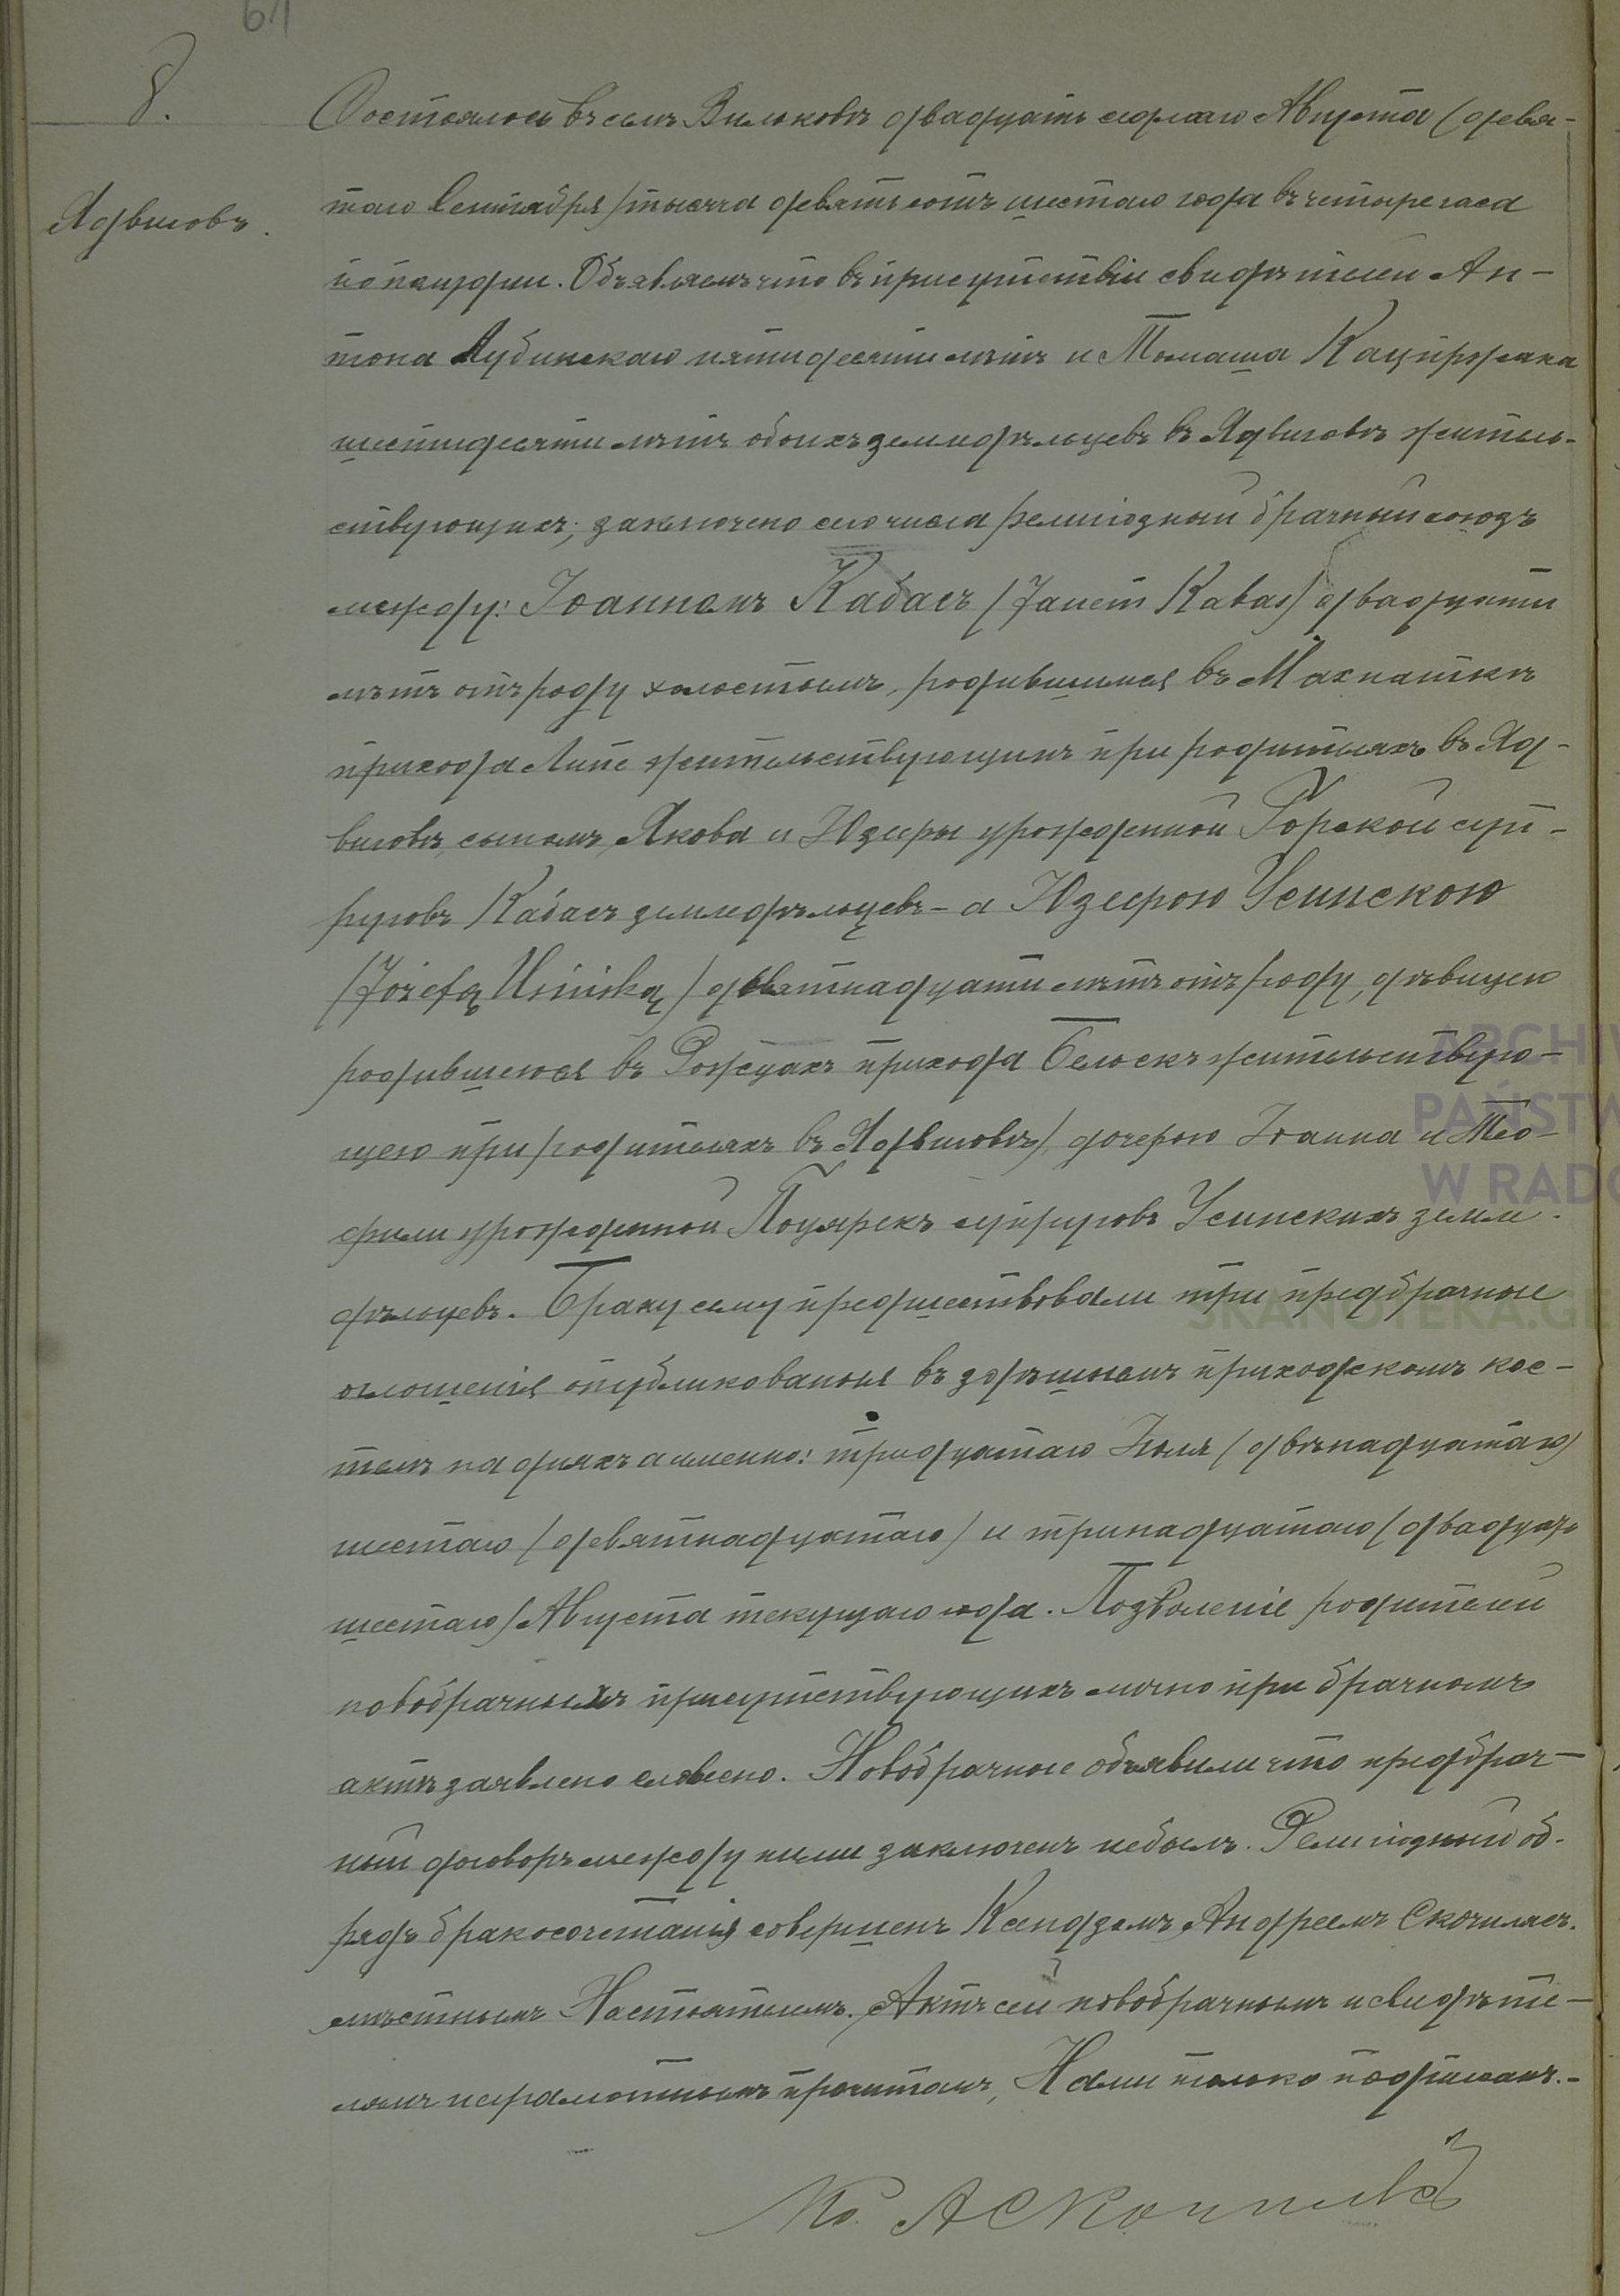 61
8.
Ядвиговъ.
Состоялось въ селѣ Вильковѣ двадцать седьмаго Августа (девя-
таго Сентября) тысяча девятьсотъ шестаго года въ четыре часа
по полудни. Объявляемъ что въ присутствіи свидѣтелей Ан-
тона Лубинскаго пятидесяти лѣтъ и Томаша Кацпржака
шестидесяти лѣтъ обоихъ земледѣльцевъ въ Ядвиговѣ житель-
ствующихъ; заключено сего числа религіозный брачный союзъ
между: Іоанномъ Кабасъ (Janem Kabas) двадцати
лѣтъ отъ роду холостымъ, родившимся въ Махнаткѣ
прихода Липе жительствующимъ при родителяхъ въ Яд-
виговѣ, сыномъ Якова и Юзефы урожденной Горской суп-
руговъ Кабасъ земледѣльцевъ - а Юзефою Усинскою
(Józefą Usińską) девятнадцати лѣтъ отъ роду, дѣвицею
родившеюся въ Рожцахъ прихода Бельскъ жительствую-
щею при родителяхъ въ Ядвиговѣ, дочерью Іоанна и Тео-
фили урожденной Поцярекъ супруговъ Усинскихъ земле-
дѣльцевъ. Браку сему предшествовали три предбрачные
оглошенія опубликованныя въ здѣшнемъ приходскомъ кос-
телѣ на дняхъ а именно: тридцатаго Іюля (двѣнадцатаго)
шестаго (девятнадцатаго) и тринадцатаго (двадцать
шестаго) Августа текущаго года. Позволеніе родителей
новобрачныхъ присутствующихъ лично при брачномъ
актѣ заявлено словесно. Новобрачные объявили что предбрач-
ный договоръ между ними заключенъ небылъ. Религіозный об-
рядъ бракосочетанія совершенъ Ксендземъ Андреемъ Скочиласъ.
мѣстнымъ Настоятелемъ. Актъ сей новобрачнымъ и свидѣте-
лямъ неграмотнымъ прочитанъ, Нами только подписанъ.-
Кс. А Скочиласъ
ARCHIW
PAŃSTW
W RADO
SKANOTEKA.GE